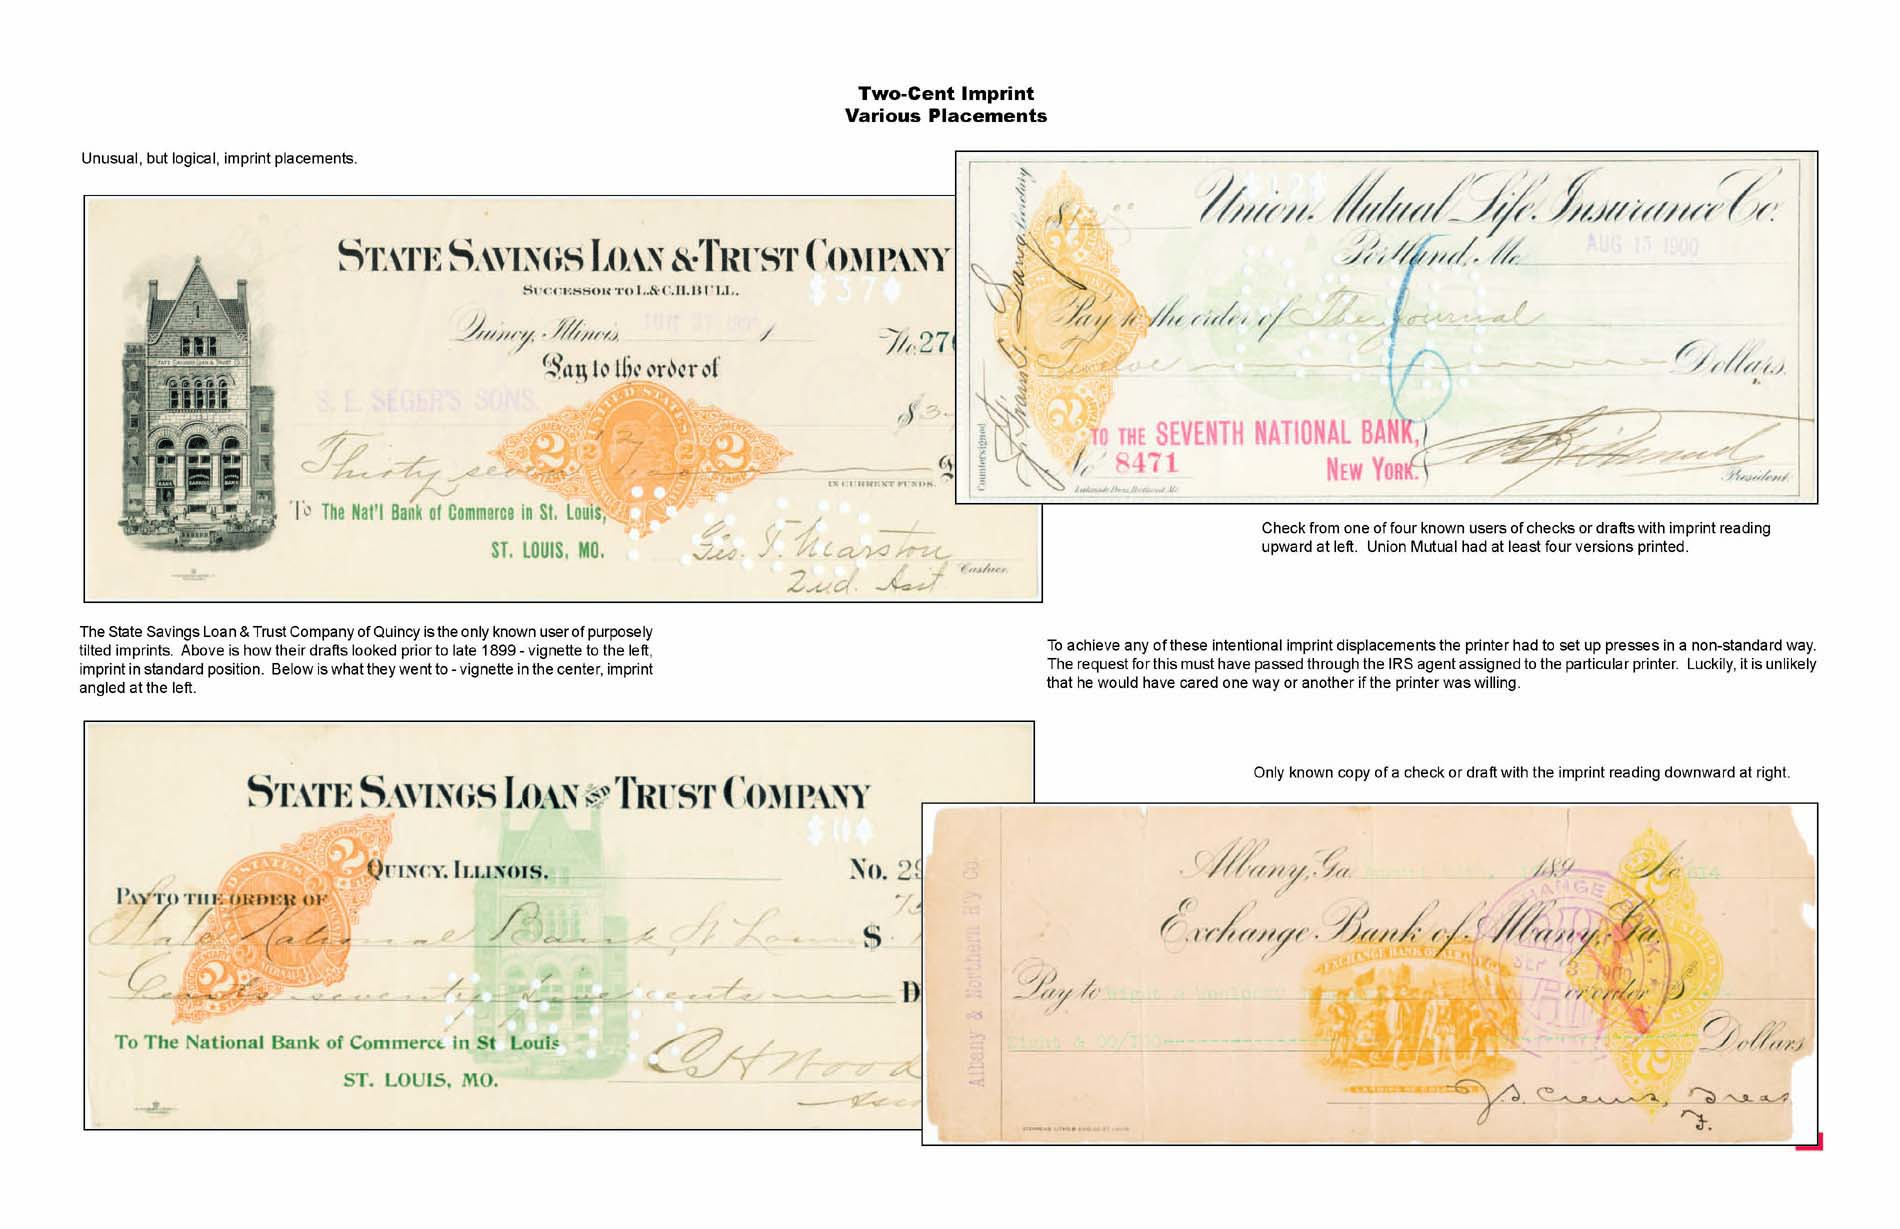 Two-Cent Imprint
Various Placements
Unusual, but logical, imprint placements.
STATE SAVINGS LOAN & TRUST COMPANY
SUCCESSOR TO L. & C.H. BULL.
$37
Quincy, Illinois,
No. 27
Pay to the order of
S. E. SEGER'S SONS.
UNITED STATES
2 2
STAMP
$
Thirty seven
IN CURRENT FUNDS.
To The Nat'l Bank of Commerce in St. Louis,
ST. LOUIS, MO.
Geo. T. Marston
2nd. Asst
Cashier.
Union Mutual Life Insurance Co.
Portland, Me.
AUG 15 1900
Pay to the order of The Journal
Twelve
Dollars.
6
TO THE SEVENTH NATIONAL BANK,
NEW YORK.
No 8471
Countersigned
President.
Check from one of four known users of checks or drafts with imprint reading
upward at left. Union Mutual had at least four versions printed.
The State Savings Loan & Trust Company of Quincy is the only known user of purposely
tilted imprints. Above is how their drafts looked prior to late 1899 - vignette to the left,
imprint in standard position. Below is what they went to - vignette in the center, imprint
angled at the left.
To achieve any of these intentional imprint displacements the printer had to set up presses in a non-standard way.
The request for this must have passed through the IRS agent assigned to the particular printer. Luckily, it is unlikely
that he would have cared one way or another if the printer was willing.
STATE SAVINGS LOAN AND TRUST COMPANY
QUINCY, ILLINOIS.
No. 29
PAY TO THE ORDER OF
State National Bank St Louis
$
seventy five cents
D
To The National Bank of Commerce in St Louis
ST. LOUIS, MO.
C H Wood
Only known copy of a check or draft with the imprint reading downward at right.
Albany & Northern R'y Co.
Albany, Ga.
189
No. 614
Exchange Bank of Albany, Ga.
EXCHANGE BANK OF ALBANY, GA.
SEP 3 1900
Pay to
or order $
Eight & 00/100
Dollars
J.S. Crews, Treas
F.